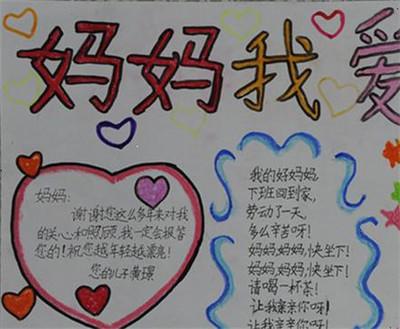 妈妈我爱
妈妈:
谢谢您这么多年来对我
的关心和照顾,我一定会报答
您的!祝您越年轻越漂亮!
您的儿子黄璟
我的好妈妈,
下班回到家,
劳动了一天,
多么辛苦呀!
妈妈,妈妈,快坐下!
妈妈,妈妈,快坐下!
请喝一杯茶!
让我亲亲你呀!
让我亲亲你呀!